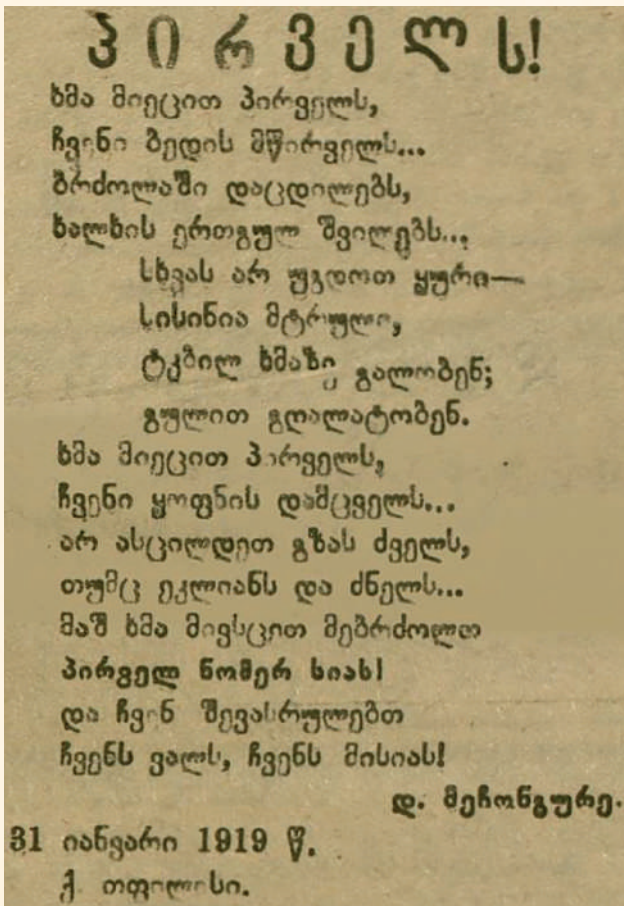 პირველს!
ხმა მიეცით პირველს,
ჩვენი ბედის მწირველს...
ბრძოლაში დაცდილებს,
ხალხის ერთგულ შვილებს...
სხვას არ უგდოთ ყური—
სისინია მტრული,
ტკბილ ხმაზე გალობენ;
გულით გღალატობენ.
ხმა მიეცით პირველს,
ჩვენი ყოფნის დამცველს...
არ ასცილდეთ გზას ძველს,
თუმც ეკლიანს და ძნელს...
მაშ ხმა მივსცით მებრძოლთ
პირველ ნომერ სიას!
და ჩვენ შევასრულებთ
ჩვენს ვალს, ჩვენს მისიას!
დ. მეჩონგურე.
31 იანვარი 1919 წ.
ქ თფილისი.